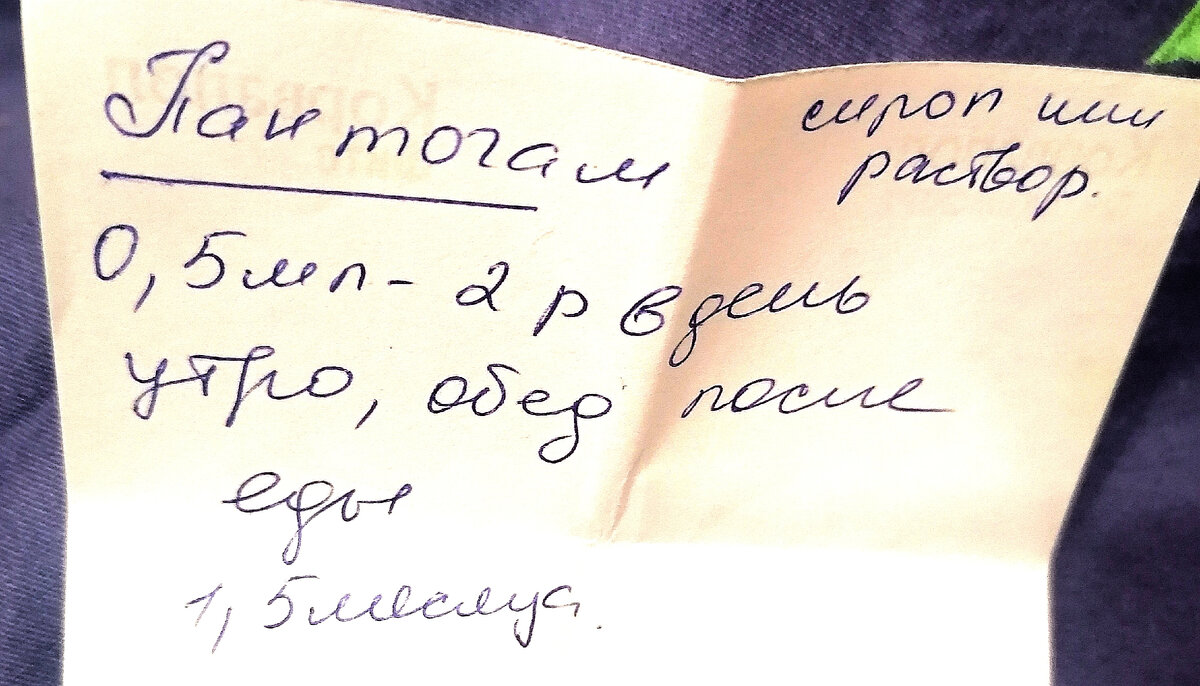 Пантогам
сироп или
раствор.
0,5мл - 2 р в день
утро, обед после
еды
1,5 месяца.